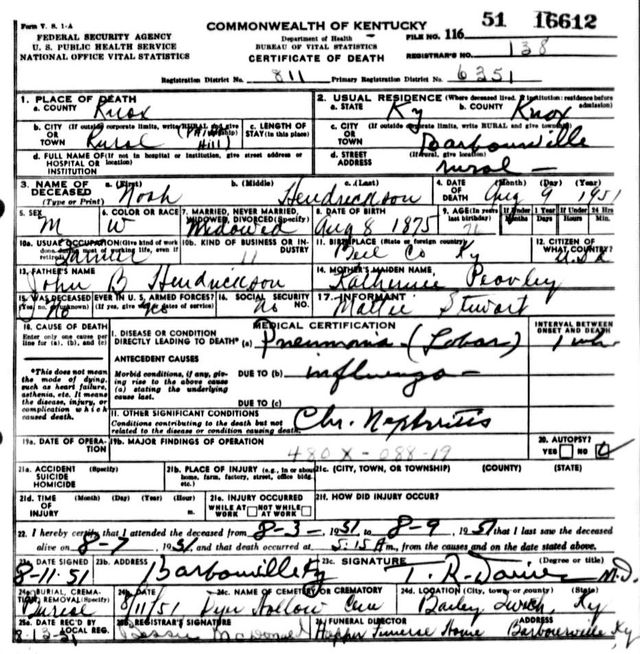 Form V. S. 1-A
FEDERAL SECURITY AGENCY
U. S. PUBLIC HEALTH SERVICE
NATIONAL OFFICE VITAL STATISTICS
COMMONWEALTH OF KENTUCKY
Department of Health
BUREAU OF VITAL STATISTICS
CERTIFICATE OF DEATH
FILE NO. 116 51 16612
REGISTRAR'S NO. 138
Registration District No. 811 Primary Registration District No. 6351
1. PLACE OF DEATH
a. COUNTY Knox
2. USUAL RESIDENCE (Where deceased lived. If institution: residence before admission)
a. STATE Ky b. COUNTY Knox
b. CITY (If outside corporate limits, write RURAL and give OR TOWN Rural Hill)
c. LENGTH OF STAY (in this place)
c. CITY (If outside corporate limits, write RURAL and give township) OR TOWN Barbourville
d. FULL NAME OF (If not in hospital or institution, give street address or location) HOSPITAL OR INSTITUTION
d. STREET ADDRESS (If rural, give location) rural
3. NAME OF DECEASED (Type or Print) a. (First) Noah b. (Middle) c. (Last) Hendrickson
4. DATE OF DEATH (Month) (Day) (Year) Aug 9 1951
5. SEX M
6. COLOR OR RACE W
7. MARRIED, NEVER MARRIED, WIDOWED, DIVORCED (Specify) Widowed
8. DATE OF BIRTH Aug 8 1875
9. AGE (In years last birthday) If Under 1 Year Months Days If Under 24 Hrs Hours Min.
10a. USUAL OCCUPATION (Give kind of work done during most of working life, even if retired) Farmer
10b. KIND OF BUSINESS OR INDUSTRY 11
11. BIRTHPLACE (State or foreign country) Bell Co Ky
12. CITIZEN OF WHAT COUNTRY? U.S.A
13. FATHER'S NAME John B Hendrickson
14. MOTHER'S MAIDEN NAME Katherine
15. WAS DECEASED EVER IN U. S. ARMED FORCES? (Yes, no, or unknown) (If yes, give war or dates of service) No
16. SOCIAL SECURITY NO. no
17. INFORMANT Mattie Stewart
18. CAUSE OF DEATH
Enter only one cause per line for (a), (b), and (c)
*This does not mean the mode of dying, such as heart failure, asthenia, etc. It means the disease, injury, or complication which caused death.
MEDICAL CERTIFICATION
I. DISEASE OR CONDITION DIRECTLY LEADING TO DEATH* (a) Pneumonia (Lobar)
INTERVAL BETWEEN ONSET AND DEATH
1 wk
ANTECEDENT CAUSES
Morbid conditions, if any, giving rise to the above cause (a) stating the underlying cause last.
DUE TO (b) influenza
DUE TO (c)
II. OTHER SIGNIFICANT CONDITIONS
Conditions contributing to the death but not related to the disease or condition causing death. Chr. Nephritis
19a. DATE OF OPERATION
19b. MAJOR FINDINGS OF OPERATION
480X-088-19
20. AUTOPSY? YES NO
21a. ACCIDENT SUICIDE HOMICIDE (Specify)
21b. PLACE OF INJURY (e.g., in or about home, farm, factory, street, office bldg. etc.)
21c. (CITY, TOWN, OR TOWNSHIP) (COUNTY) (STATE)
21d. TIME OF INJURY (Month) (Day) (Year) (Hour) m.
21e. INJURY OCCURRED WHILE AT WORK NOT WHILE AT WORK
21f. HOW DID INJURY OCCUR?
22. I hereby certify that I attended the deceased from 8-3-, 1951, to 8-9, 1951 that I last saw the deceased
alive on 8-7, 1951, and that death occurred at 5:15 A m., from the causes and on the date stated above.
23a. DATE SIGNED 8-11-51
23b. ADDRESS Barbourville Ky
23c. SIGNATURE (Degree or title) T. R. Davies M.D.
24a. BURIAL, CREMATION, REMOVAL (Specify) Burial
24b. DATE 8/11/51
24c. NAME OF CEMETERY OR CREMATORY Hollow Cem
24d. LOCATION (City, town or county) (State) Bailey Switch, Ky
25a. DATE REC'D BY LOCAL REG. 8-13-51
25b. REGISTRAR'S SIGNATURE Bessie McDonald
26. FUNERAL DIRECTOR Hopper Funeral Home
ADDRESS Barbourville, Ky